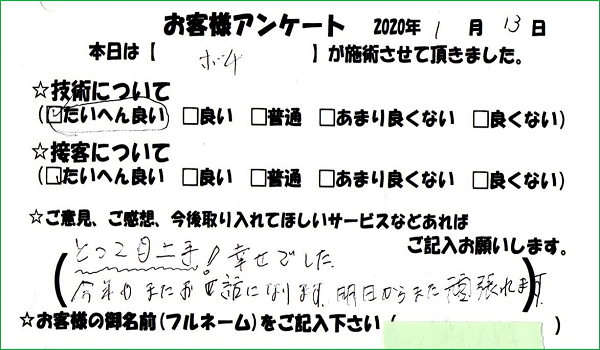 お客様アンケート 2020年 1 月 13 日
本日は【 】が施術させて頂きました。
☆技術について
(□たいへん良い □良い □普通 □あまり良くない □良くない)
☆接客について
(□たいへん良い □良い □普通 □あまり良くない □良くない)
☆ご意見、ご感想、今後取り入れてほしいサービスなどあれば
ご記入お願いします。
とっても上手! 幸せでした
今年もまたお世話になります。明日からまた頑張れます
☆お客様の御名前(フルネーム)をご記入下さい( )